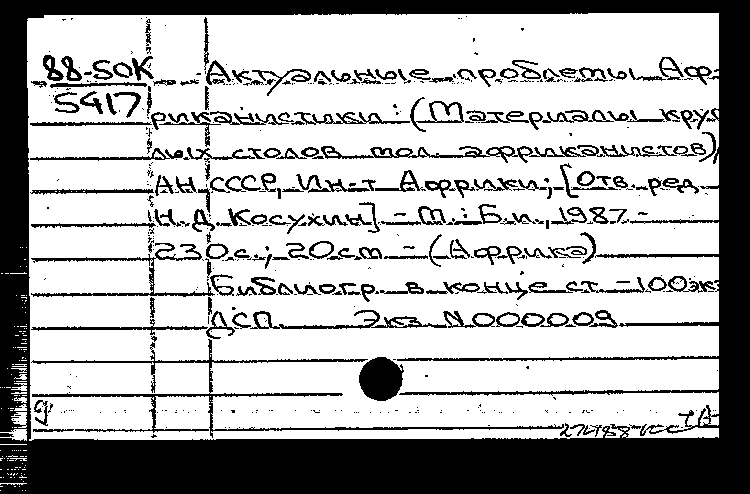 88-50К Актуальные проблемы Аф-
5417 риканистики : (Материалы круг
лых столов мол. африканистов)/
АН СССР, Ин-т Африки; [Отв. ред.
Н.Д. Косухин] - М. : Б.и., 1987 -
230с.; 20см - (Африка)
Библиогр. в конце ст. - 100экз
ДСП. Экз. N 000009